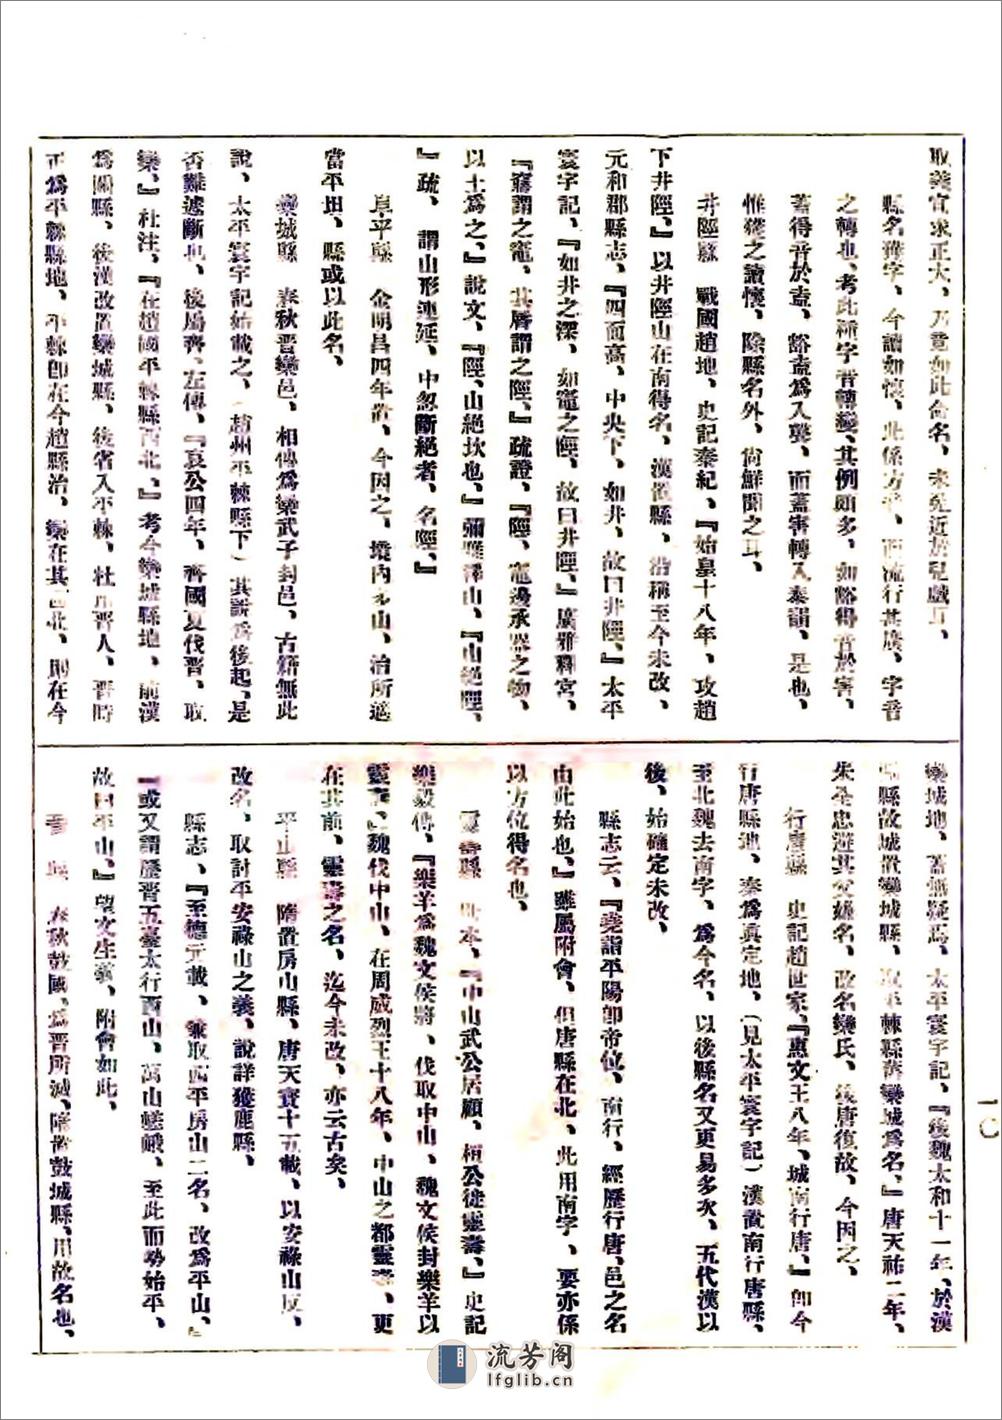 取義宜求正大、乃竟如此命名、未免近於兒戲耳、
縣名獲字、今讀如懷、此係方音、而流行甚廣、字音
之轉也、考此種字音轉變、其例頗多、如豁得音於害、
蓋得音於盍、豁盍爲入聲、而蓋害轉入泰韻、是也、
惟獲之讀懷、除縣名外、尙鮮聞之耳、
井陘縣 戰國趙地、史記秦紀、『始皇十八年、攻趙
下井陘、』以井陘山在南得名、漢置縣、沿稱至今未改、
元和郡縣志、『四面高、中央下、如井、故曰井陘、』太平
寰宇記、『如井之深、如竈之陘、故曰井陘、』廣雅釋宮、
『竈謂之竈、其脣謂之陘、』疏證、『陘、竈邊承器之物、
以土爲之、』說文、『陘、山絕坎也、』爾雅釋山、『山絕陘、
』疏、謂山形連延、中忽斷絕者、名陘、』
阜平縣 金明昌四年置、今因之、境內多山、治所適
當平坦、縣或以此名、
欒城縣 春秋晉欒邑、相傳爲欒武子封邑、古籍無此
說、太平寰宇記始載之、（趙州平棘縣下）其說爲後起、是
否難遽斷也、後屬齊、左傳、『哀公四年、齊國夏伐晉、取
欒、』杜注、『在趙國平棘縣西北、』考今欒城縣地、前漢
爲關縣、後漢改置欒城縣、後省入平棘、杜用晉人、晉時
正爲平棘縣地、平棘卽在今趙縣治、欒在其西北、則在今
欒城地、蓋無疑焉、太平寰宇記、『後魏太和十一年、於漢
縣故城置欒城縣、取平棘縣舊欒城爲名、』唐天祐二年、
朱全忠避其父嫌名、改名欒氏、後唐復故、今因之、
行唐縣 史記趙世家、『惠文王八年、城南行唐、』卽今
行唐縣地、秦爲眞定地、（見太平寰宇記）漢置南行唐縣、
至北魏去南字、爲今名、以後縣名又更易多次、五代漢以
後、始確定未改、
縣志云、『堯詣平陽卽帝位、南行、經歷行唐、邑之名
由此始也、』雖屬附會、但唐縣在北、此用南字、要亦係
以方位得名也、
靈壽縣 世本、『中山武公居顧、桓公徙靈壽、』史記
樂毅傳、『樂羊爲魏文侯將、伐取中山、魏文侯封樂羊以
靈壽、』魏伐中山、在周威烈王十八年、中山之都靈壽、更
在其前、靈壽之名、迄今未改、亦云古矣、
平山縣 隋置房山縣、唐天寶十五載、以安祿山反、
改名、取討平安祿山之義、說詳獲鹿縣、
縣志、『至德元載、兼取西平房山二名、改爲平山、』
『或又謂歷晉五臺太行西山、萬山嵯峨、至此而勢始平、
故曰平山、』望文生義、附會如此、
晉縣 春秋鼓國、爲晉所滅、隋置鼓城縣、用故名也、
一〇
流芳阁
lfglib.cn